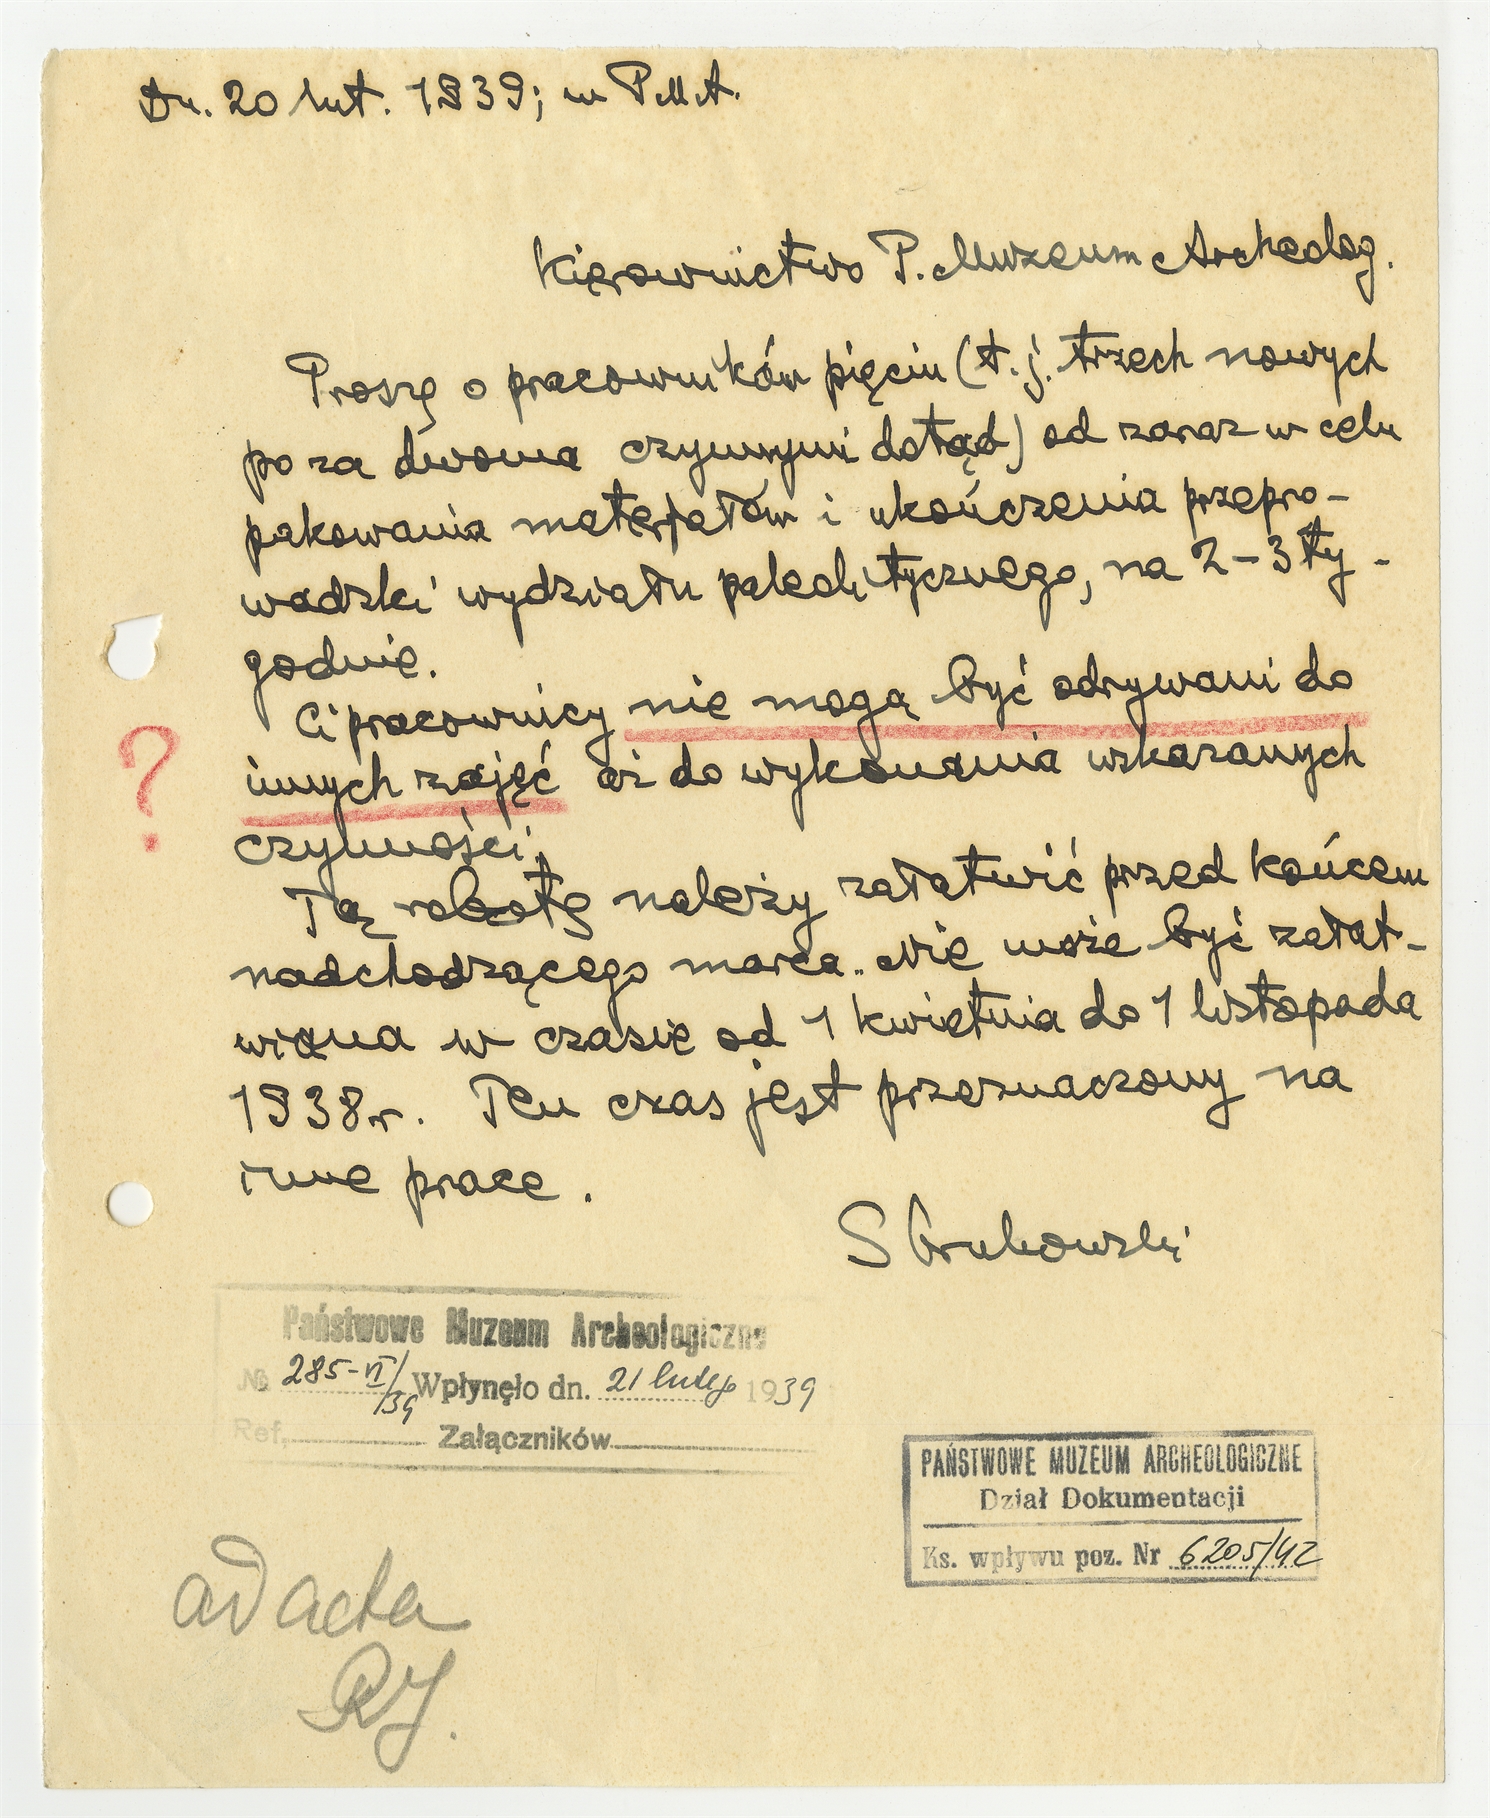 Dn. 20 lut. 1939; w P.M.A.
Kierownictwo P. Muzeum Archeolog.
Proszę o pracowników pięciu (t.j. trzech nowych
po za dwoma czynnymi dotąd) od zaraz w celu
pakowania materjałów i ukończenia przepro-
wadzki wydziału paleolitycznego, na 2-3 ty-
godnie.
Ci pracownicy nie mogą być odrywani do
?
innych zajęć aż do wykonania wskazanych
czynności.
Tą robotę należy załatwić przed końcem
nadchodzącego marca. Nie może być załat-
wiona w czasie od 1 kwietnia do 1 listopada
1938 r. Ten czas jest przeznaczony na
inne prace.
S Krukowski
Państwowe Muzeum Archeologiczne
№ 285-VI/39 Wpłynęło dn. 21 lutego 1939
Ref. Załączników
PAŃSTWOWE MUZEUM ARCHEOLOGICZNE
Dział Dokumentacji
Ks. wpływu poz. Nr 6205/42
ad acta
RJ.